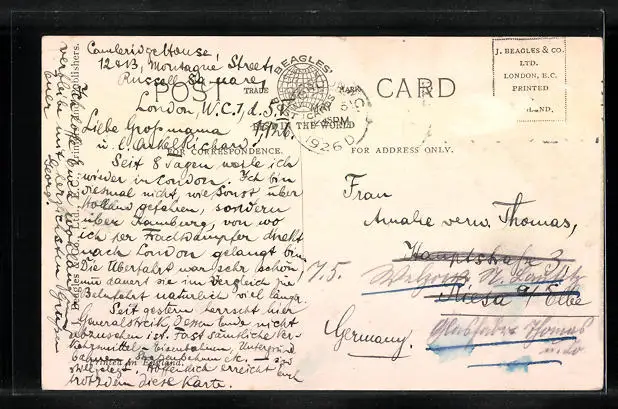 Cambridge House,
12 & 13, Montague Street,
Russell Square,
London, W.C.1, d. 5.V.
1926.
Liebe Großmama
u. l. Onkel Richard!
Seit 8 Tagen weile ich
wieder in London. Ich bin
diesmal nicht, wie sonst über
Holland gefahren, sondern
über Hamburg, von wo
ich per Frachtdampfer direkt
nach London gelangt bin.
Die Überfahrt war sehr schön,
nur dauert sie im Vergleich zur
Bahnfahrt natürlich viel länger.
Seit gestern herrscht hier
Generalstreik, dessen Ende nicht
abzusehen ist. Fast sämtliche Ver-
kehrsmittel, Eisenbahnen, Untergrund
bahnen, Strassenbahnen etc. —
Hoffentlich erreicht Euch
trotzdem diese Karte.
verbleibe mit herzlichsten Grüßen
Euer
Georg.
Beagles & Co., Ltd., E.C. Publishers.
POST CARD
TRADE MARK
BEAGLES'
POST CARDS
BEST IN THE WORLD
FOR CORRESPONDENCE.
FOR ADDRESS ONLY.
Printed in England.
MAY 5
PM
1926
J. BEAGLES & CO.
LTD.
LONDON, E.C.
PRINTED
Frau
Amalie verw. Thomas,
Hauptstraße 3
7.5.
Riesa a/Elbe
Germany.
Thomas